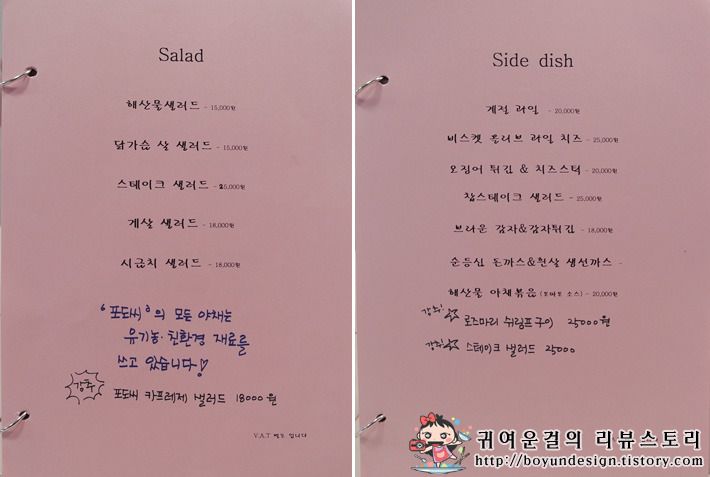 Salad
해산물샐러드 - 15,000원
닭가슴 살 샐러드 - 15,000원
스테이크 샐러드 - 25,000원
게살 샐러드 - 18,000원
시금치 샐러드 - 18,000원
"포도씨"의 모든 야채는
유기농·친환경 재료를
쓰고 있습니다!
강추 포도씨 카프레제 샐러드 18000원
V.A.T 별도 입니다
Side dish
계절 과일 - 20,000원
비스켓 올리브 과일 치즈 - 25,000원
오징어 튀김 & 치즈스틱 - 20,000원
찹스테이크 샐러드 - 25,000원
브라운 감자&감자튀김 - 18,000원
순등심 돈까스&흰살 생선까스 -
해산물 야채볶음 (토마토 소스) - 20,000원
강추! 로즈마리 쉬림프구이 25000원
강추! 스테이크 샐러드 25000
귀여운걸의 리뷰스토리
http://boyundesign.tistory.com/